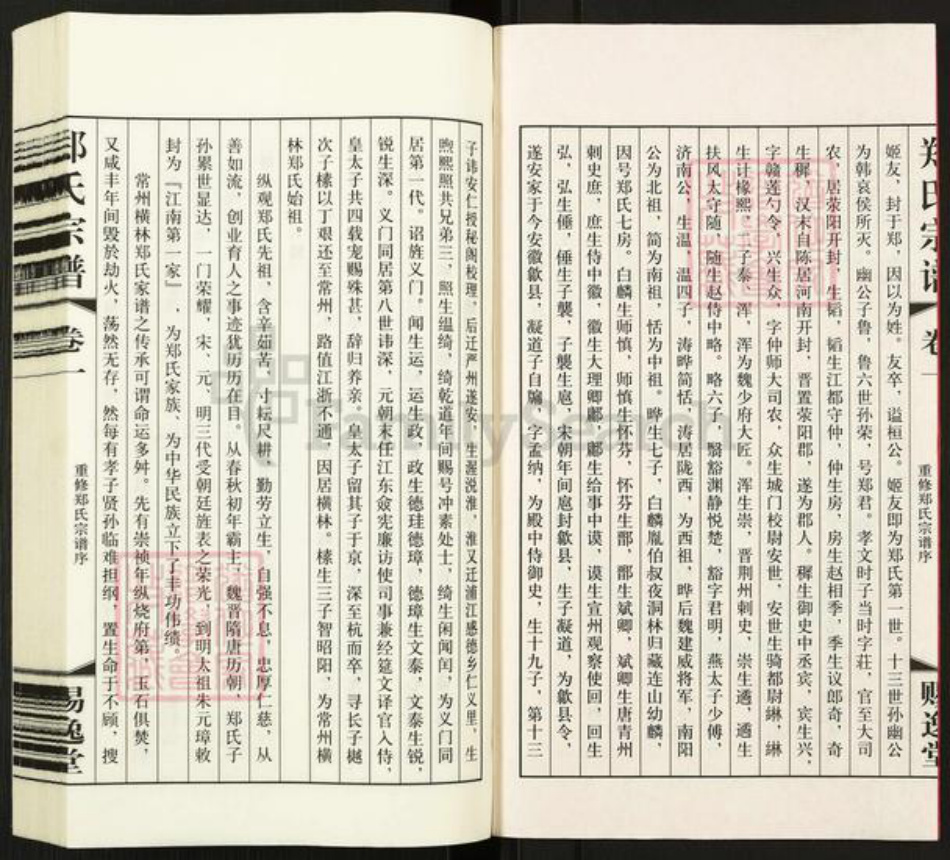 郑氏宗谱
卷一
重修郑氏宗谱序
赐逸堂
姬友，封于郑，因以为姓。友卒，谥桓公。姬友即为郑氏第一世。十三世孙幽公
为韩哀侯所灭。幽公子鲁，鲁六世孙荣，号郑君。孝文时子当时字荘，官至大司
农，居荥阳开封，生韬，韬生江都守仲，仲生房，房生赵相季，季生议郎奇，奇
生穉，汉末自陈居河南开封，晋置荥阳郡，遂为郡人。穉生御史中丞宾，宾生兴，
字赣莲勺令，兴生众，字仲师大司农，众生城门校尉安世，安世生骑都尉綝，綝
生计椽熙，二子泰、浑，浑为魏少府大匠。浑生崇，晋荆州刺史，崇生遹，遹生
扶风太守随，随生赵侍中略。略六子，翳豁渊静悦楚，豁字君明，燕太子少傅，
济南公，生温，温四子，涛晔简恬，涛居陇西，为西祖，晔后魏建威将军，南阳
公为北祖，简为南祖，恬为中祖。晔生七子，白麟胤伯叔夜洞林归藏连山幼麟，
因号郑氏七房。白麟生师慎，师慎生怀芬，怀芬生鄑，鄑生斌卿，斌卿生唐青州
刺史庶，庶生侍中徽，徽生大理卿鄘，鄘生给事中谟，谟生宣州观察使回，回生
弘，弘生倕，倕生子襲，子襲生扈，宋朝年间扈封歙县，生子凝道，为歙县令，
遂安家于今安徽歙县，凝道子自牖，字孟纳，为殿中侍御史，生十九子，第十三
子讳安仁授秘阁校理，后迁严州遂安，生渥涗淮，淮又迁浦江感德乡仁义里，生
煦熙照共兄弟三，照生缊绮，绮乾道年间赐号冲素处士，绮生闲闻闰，为义门同
居第一代。诏旌义门。闻生运，运生政，政生德珪德璋，德璋生文泰，文泰生锐，
锐生深。义门同居第八世讳深，元朝末任江东佥宪廉访使司事兼经筵文译官入侍，
皇太子共四载宠赐殊甚，辞归养亲，皇太子留其子于京，深至杭而卒，寻长子樾
次子榡以丁艰还至常州，路值江浙不通，因居横林。榡生三子智昭阳，为常州横
林郑氏始祖。
纵观郑氏先祖，含辛茹苦，寸耘尺耕，勤劳立生，自强不息，忠厚仁慈，从
善如流，创业育人之事迹犹历历在目。从春秋初年霸主，魏晋隋唐历朝，郑氏子
孙累世显达，一门荣耀，宋、元、明三代受朝廷旌表之荣光，到明太祖朱元璋敕
封为『江南第一家』，为郑氏家族、为中华民族立下了丰功伟绩。
常州横林郑氏家谱之传承可谓命运多舛。先有崇祯年纵烧府第，玉石俱焚，
又咸丰年间毁於劫火，荡然无存，然每有孝子贤孙临难担纲，置生命于不顾，搜
郑氏宗谱
卷一
重修郑氏宗谱序
赐逸堂
FamilySearch